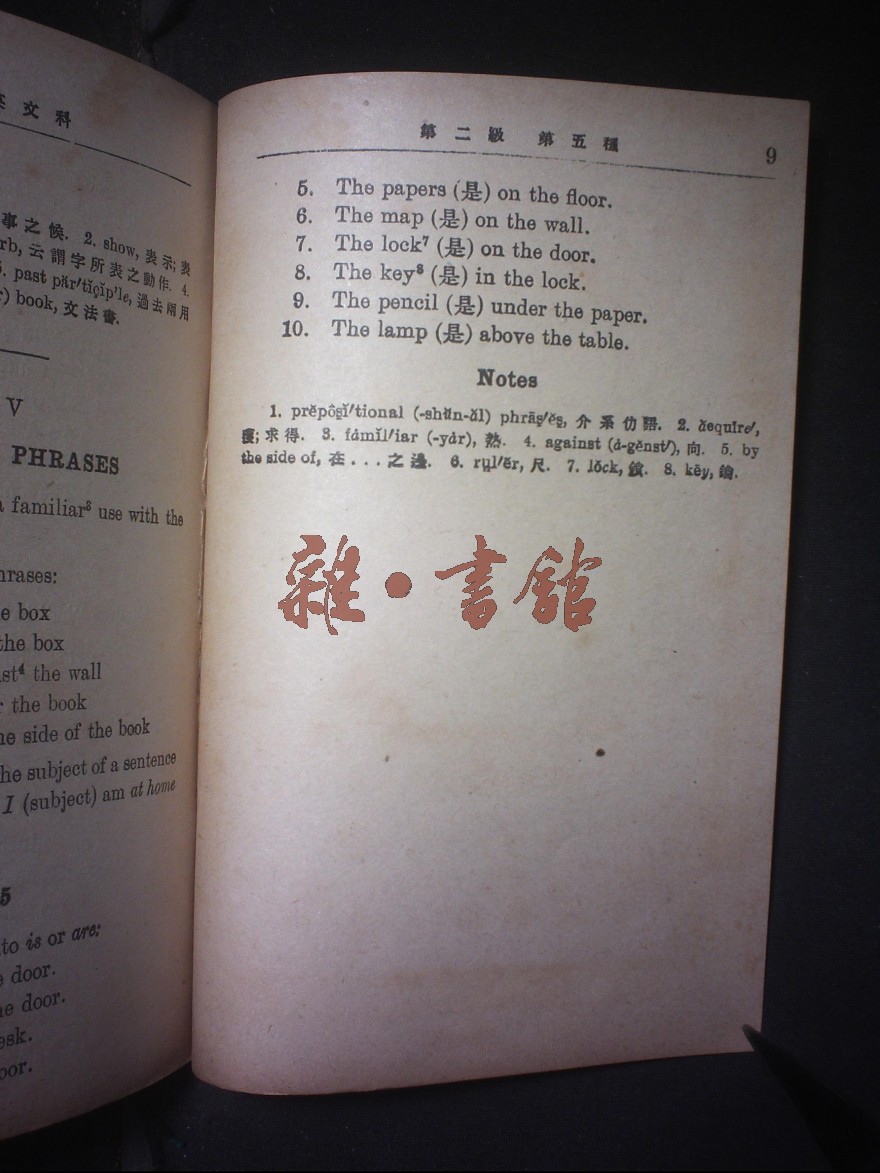 文科
事之候. 2. show, 表示; 表
rb, 云謂字所表之動作. 4.
past pär′tĭçĭp′le, 過去兩用
) book, 文法書.
V
PHRASES
familiar³ use with the
hrases:
e box
the box
st⁴ the wall
r the book
he side of the book
he subject of a sentence
I (subject) am at home
5
to is or are:
e door.
he door.
esk.
oor.
第二級 第五種 9
5. The papers (是) on the floor.
6. The map (是) on the wall.
7. The lock⁷ (是) on the door.
8. The key⁸ (是) in the lock.
9. The pencil (是) under the paper.
10. The lamp (是) above the table.
Notes
1. prĕpôṣĭ′tional (-shŭn-ăl) phrāṣ′ĕṣ, 介系仂語. 2. ăcquīre′,
獲; 求得. 3. fȧmĭl′iar (-yȧr), 熟. 4. against (ȧ-gĕnst′), 向. 5. by
the side of, 在...之邊. 6. rṳl′ĕr, 尺. 7. lŏck, 鎖. 8. kēy, 鑰.
雜·書館